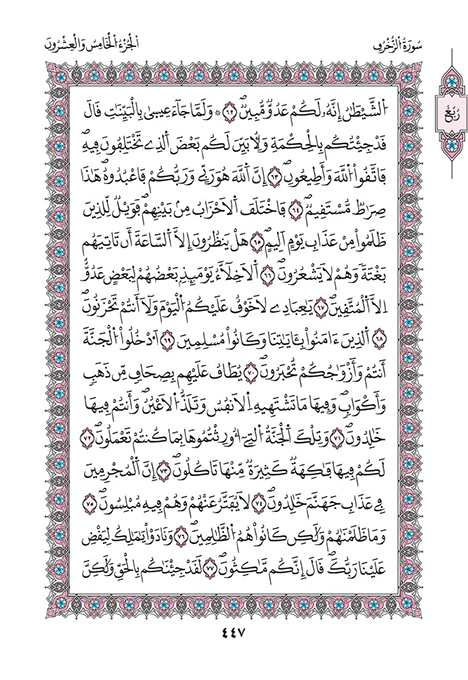 سُورَةُ الزُّخْرُفِ
اَلْجُزْءُ الْخَامِسُ وَالْعِشْرُونَ
رُبُع
اَ۬لشَّيْطَٰنُ إِنَّهُۥ لَكُمْ عَدُوّٞ مُّبِينٞۖ ٦٢ ۞ وَلَمَّا جَآءَ عِيسىٰ بِالْبَيِّنَٰتِ قَالَ
قَدْ جِئْتُكُم بِالْحِكْمَةِ وَلِأُبَيِّنَ لَكُم بَعْضَ اَ۬لذِے تَخْتَلِفُونَ فِيهِۖ
فَاتَّقُواْ اُ۬للَّهَ وَأَطِيعُونِۖ ٦٣ إِنَّ اَ۬للَّهَ هُوَ رَبِّے وَرَبُّكُمْ فَاعْبُدُوهُۖ هَٰذَا
صِرَٰطٞ مُّسْتَقِيمٞۖ ٦٤ فَاخْتَلَفَ اَ۬لَاحْزَابُ مِنۢ بَيْنِهِمْۖ فَوَيْلٞ لِّلذِينَ
ظَلَمُواْ مِنْ عَذَابِ يَوْمٍ اَلِيمٍۖ ٦٥ هَلْ يَنظُرُونَ إِلَّا اَ۬لسَّاعَةَ أَن تَاتِيَهُم
بَغْتَةٗ وَهُمْ لَا يَشْعُرُونَۖ ٦٦ اَ۬لَاخِلَّآءُ يَوْمَئِذِۢ بَعْضُهُمْ لِبَعْضٍ عَدُوٌّ
اِلَّا اَ۬لْمُتَّقِينَۖ ٦٧ يَٰعِبَادِے لَا خَوْفٌ عَلَيْكُمُ اُ۬لْيَوْمَ وَلَآ أَنتُمْ تَحْزَنُونَۖ
٦٨ اَ۬لذِينَ ءَامَنُواْ بِـَٔايَٰتِنَا وَكَانُواْ مُسْلِمِينَۖ ٦٩ اَ۟دْخُلُواْ اُ۬لْجَنَّةَ
أَنتُمْ وَأَزْوَٰجُكُمْ تُحْبَرُونَۖ ٧٠ يُطَافُ عَلَيْهِم بِصِحَافٖ مِّن ذَهَبٖ
وَأَكْوَابٖۖ وَفِيهَا مَا تَشْتَهِيهِ اِ۬لَانفُسُ وَتَلَذُّ اُ۬لَاعْيُنُۖ وَأَنتُمْ فِيهَا
خَٰلِدُونَۖ ٧١ وَتِلْكَ اَ۬لْجَنَّةُ اُ۬لتِے أُورِثْتُمُوهَا بِمَا كُنتُمْ تَعْمَلُونَۖ ٧٢
لَكُمْ فِيهَا فَٰكِهَةٞ كَثِيرَةٞ مِّنْهَا تَاكُلُونَۖ ٧٣ إِنَّ اَ۬لْمُجْرِمِينَ
فِے عَذَابِ جَهَنَّمَ خَٰلِدُونَۖ ٧٤ لَا يُفَتَّرُ عَنْهُمْ وَهُمْ فِيهِ مُبْلِسُونَۖ ٧٥
وَمَا ظَلَمْنَٰهُمْ وَلَٰكِن كَانُواْ هُمُ اُ۬لظَّٰلِمِينَۖ ٧٦ وَنَادَوْاْ يَٰمَٰلِكُ لِيَقْضِ
عَلَيْنَا رَبُّكَۖ قَالَ إِنَّكُم مَّٰكِثُونَۖ ٧٧ لَقَدْ جِئْنَٰكُم بِالْحَقِّ وَلَٰكِنَّ
٤٤٧